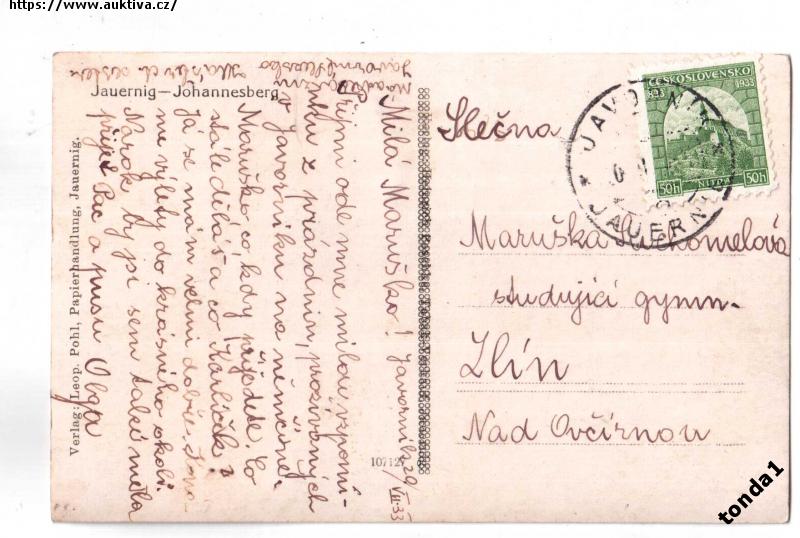 https://www.auktiva.cz/
Jauernig—Johannesberg
Verlag: Leop. Pohl, Papierhandlung, Jauernig.
107127
Milá Maruško! Javorník 29/VII-33
Přijmi ode mne milou vzpomí-
nku z prázdnin, prožívaných
v Javorníku na němčině.
Maruško co kdy přijedete. Co
stále děláš a co Karlíček?
Já se mám velmi dobře.
me výlety do krásného okolí.
Na rok by jsi sem také měla
přijet Pac a pusu Olga
Slečna
Maruška Suchomelova
studující gymn.
Zlín
Nad Ovčírnou
ČESKOSLOVENSKO
833 1933
50h NITRA 50h
JAVORNÍK
JAUERNIG
tonda1